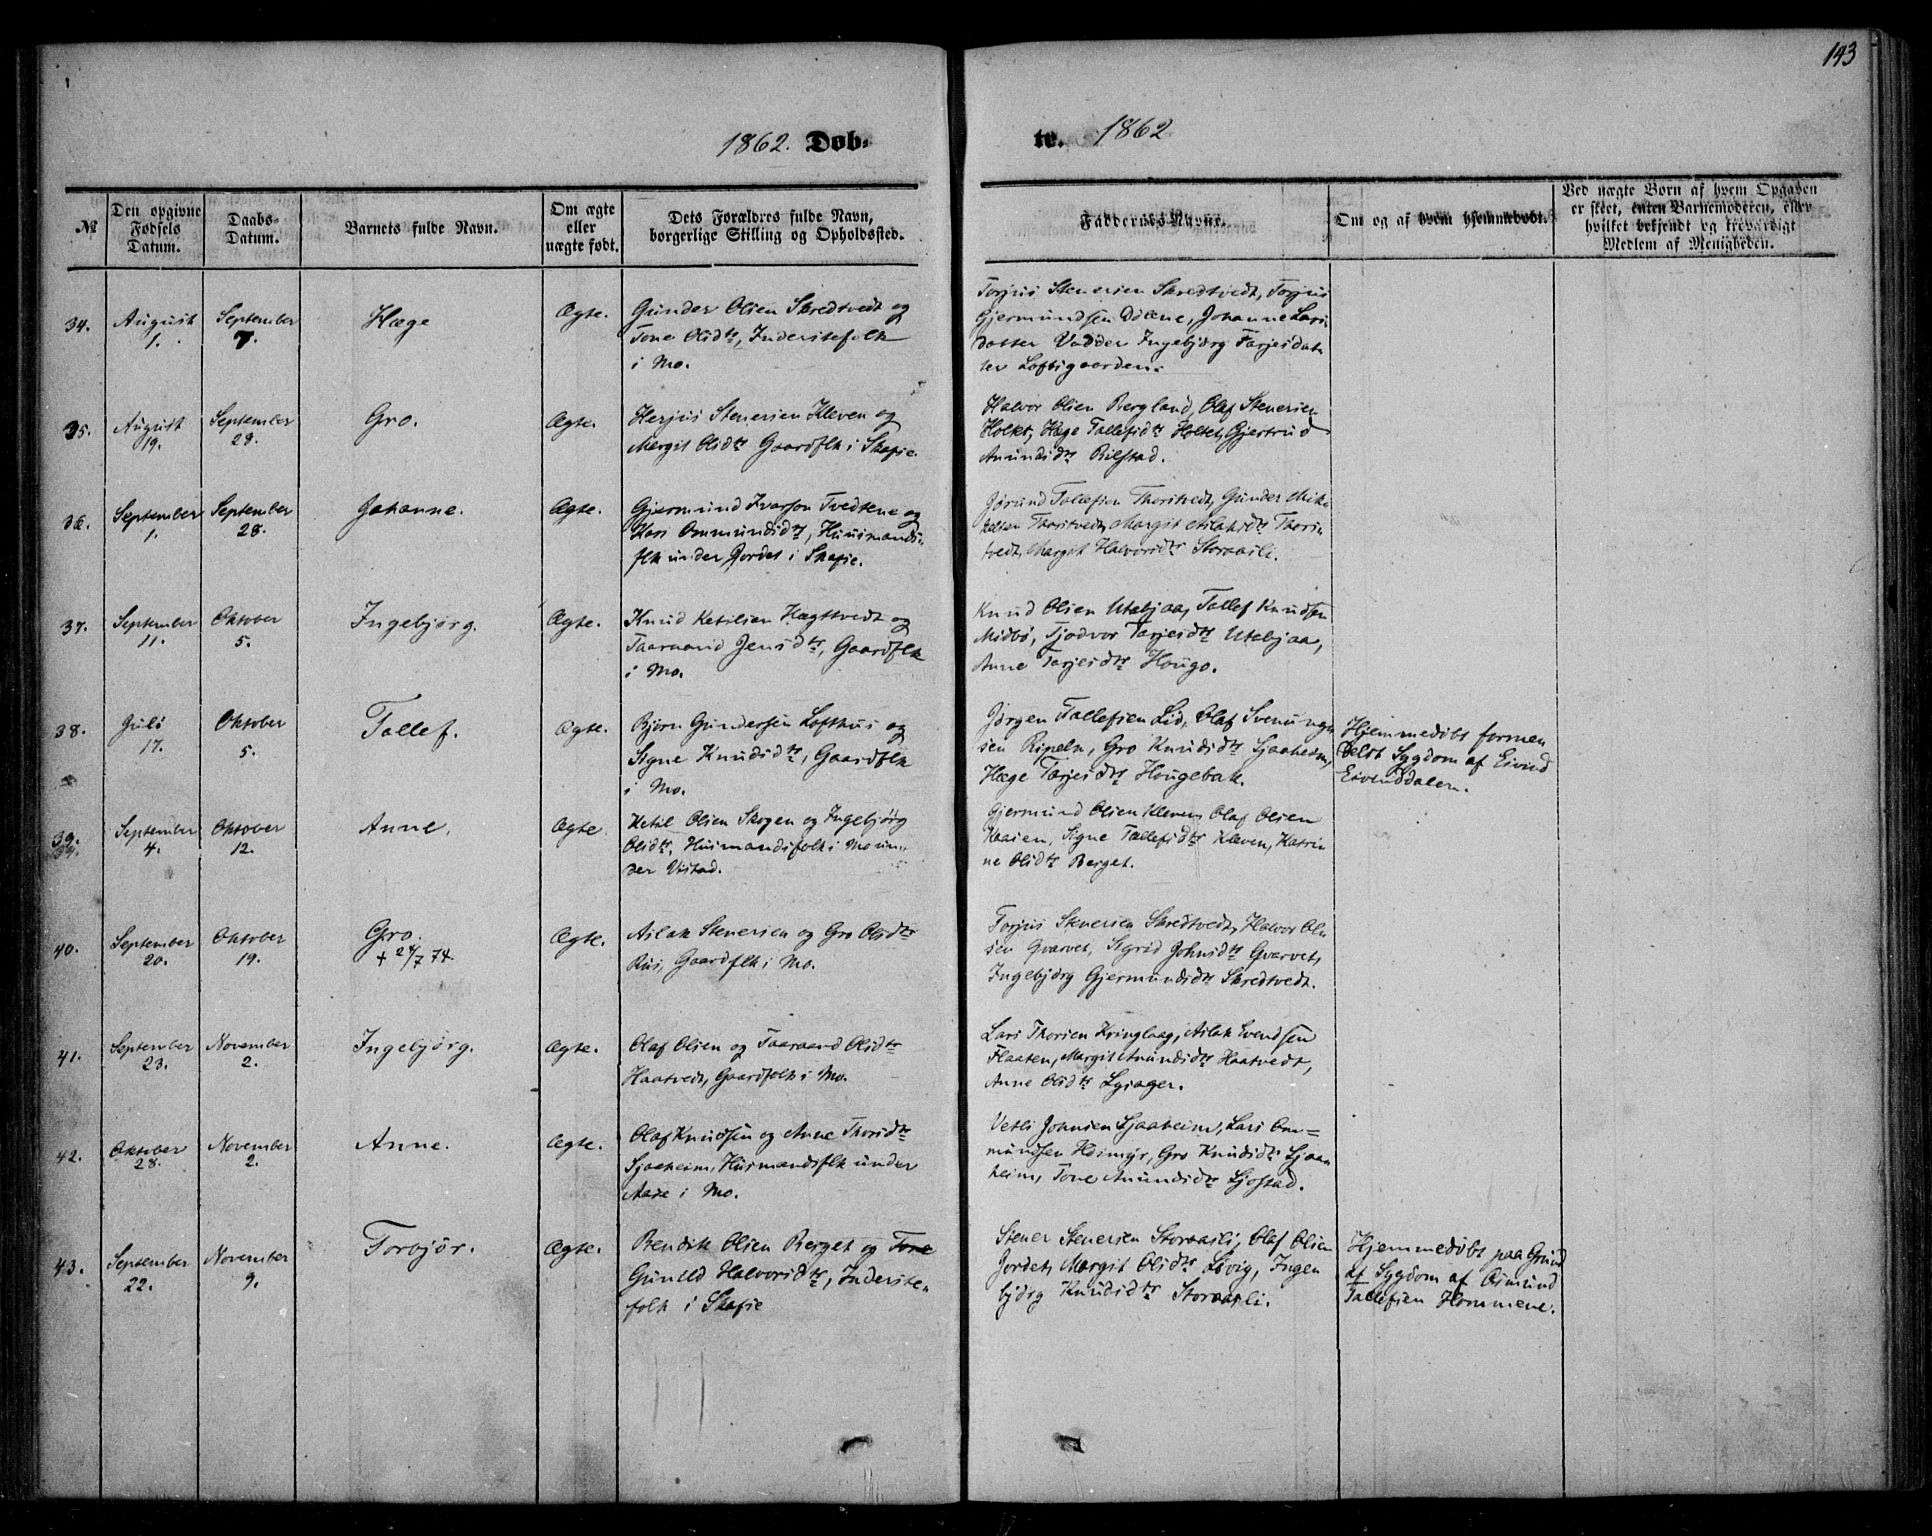 143
1862. Døb-
te. 1862
№
Den opgivne
Fødsels
Datum.
Daabs-
Datum.
Barnets fulde Navn.
Om ægte
eller
uægte født.
Dets Forældres fulde Navn,
borgerlige Stilling og Opholdssted.
Faddernes Navne.
Om og af hvem hjemmedøbt.
Ved uægte Børn af hvem Opgaven
er skeet, enten Barnemoderen, eller
hvilket bekjendt og troværdigt
Medlem af Menigheden.
34.
August
1.
September
7.
Hæge
Ægte.
Gunder Olsen Skredtvedt og
Tone Olsdtr, Inderstefolk
i Mo.
Torjus Stenersen Skredtvedt, Torjus
Gjermundsen Døene, Johanne Lars-
datter Vadder Ingebjørg Tarjesdat-
ter Loftsgaarden.
35.
August
19.
September
28.
Gro.
Ægte.
Herjus Stenersen Kleven og
Margit Olsdtr Gaardflk i Skafse.
Halvor Olsen Bergland, Olaf Stenersen
Holtet, Hæge Tallefsdtr Holtet, Gjertrud
Anundsdtr Rilstad.
36.
September
1.
September
28.
Johanne.
Ægte.
Gjermund Ivarson Tvedtene og
Kari Ommundsdtr, Huusmands-
flk under Jordet i Skafse.
Jørund Tallefsen Thorstvedt, Gunder Mik-
kelsen Thorstvedt, Margit Aslaksdtr Thors-
tvedt, Margit Halvorsdtr Storaasli.
37.
September
11.
Oktober
5.
Ingebjørg.
Ægte.
Knud Ketilsen Hægtvedt og
Taaraand Jensdtr, Gaardflk
i Mo.
Knud Olsen Utabjaa, Tallef Knudsen
Midbø, Tjodvor Tarjesdtr Utabjaa,
Anne Tarjesdtr Hougo.
38.
Juli
17.
Oktober
5.
Tallef.
Ægte.
Bjørn Gundersen Lofthus og
Signe Knudsdtr, Gaardflk
i Mo.
Jørgen Tallefsen Lid, Olaf Svenung-
sen Ripeln, Gro Knudsdtr Sjaaheim,
Hæge Tarjesdtr Hougebak.
Hjemmedøbt formen
delst Sygdom af Eivind
Eivinddalen.
39.
34.
September
4.
Oktober
12.
Anne.
Ægte
Ketil Olsen Skogen og Ingebjørg
Olsdtr, Husmandsfolk i Mo un-
der Vistad.
Gjermund Olsen Kleven, Olaf Olsen
Haaien, Signe Tallefsdtr Kleven, Katri-
ne Olsdtr Berget.
40.
September
20.
Oktober
19.
Gro.
+ 24/7 74.
Ægte.
Aslak Stenersen og Gro Olsdtr
Rui, Gaardflk i Mo.
Torjus Stenersen Skredtvedt, Halvor Ol-
sen Qvarvet, Sigrid Johnsdtr Qvarvet,
Ingebjørg Gjermundsdtr Skredtvedt.
41.
September
23.
November
2.
Ingebjørg.
Ægte.
Olaf Olsen og Taaraand Olsdtr
Haatvedt, Gaardfolk i Mo.
Lars Thorsen Kringlaag, Aslak Svendsen
Flaaten, Margit Anundsdtr Haatvedt,
Anne Olsdtr Lysager.
42.
Oktober
28.
November
2.
Anne.
Ægte.
Olaf Knudsen og Anne Thorsdtr
Sjaaheim, Husmandsflk under
Aase i Mo.
Vetli Joansen Sjaaheim, Lars Om=
mundsen Heimyr, Gro Knudsdtr Sjaa-
heim, Tone Anundsdtr Ljostad.
43.
September
22.
November
9.
Torbjør.
Ægte.
Bendik Olsen Berget og Tone
Gunild Halvorsdtr, Inderste-
folk i Skafse
Stener Stenersen Storaasli, Olaf Olsen
Jordet, Margit Olsdtr Livig, Inge-
bjørg Knudsdtr Storaasli.
Hjemmedøbt paa Grund
af Sygdom af Osmund
Tallefsen Hommene.